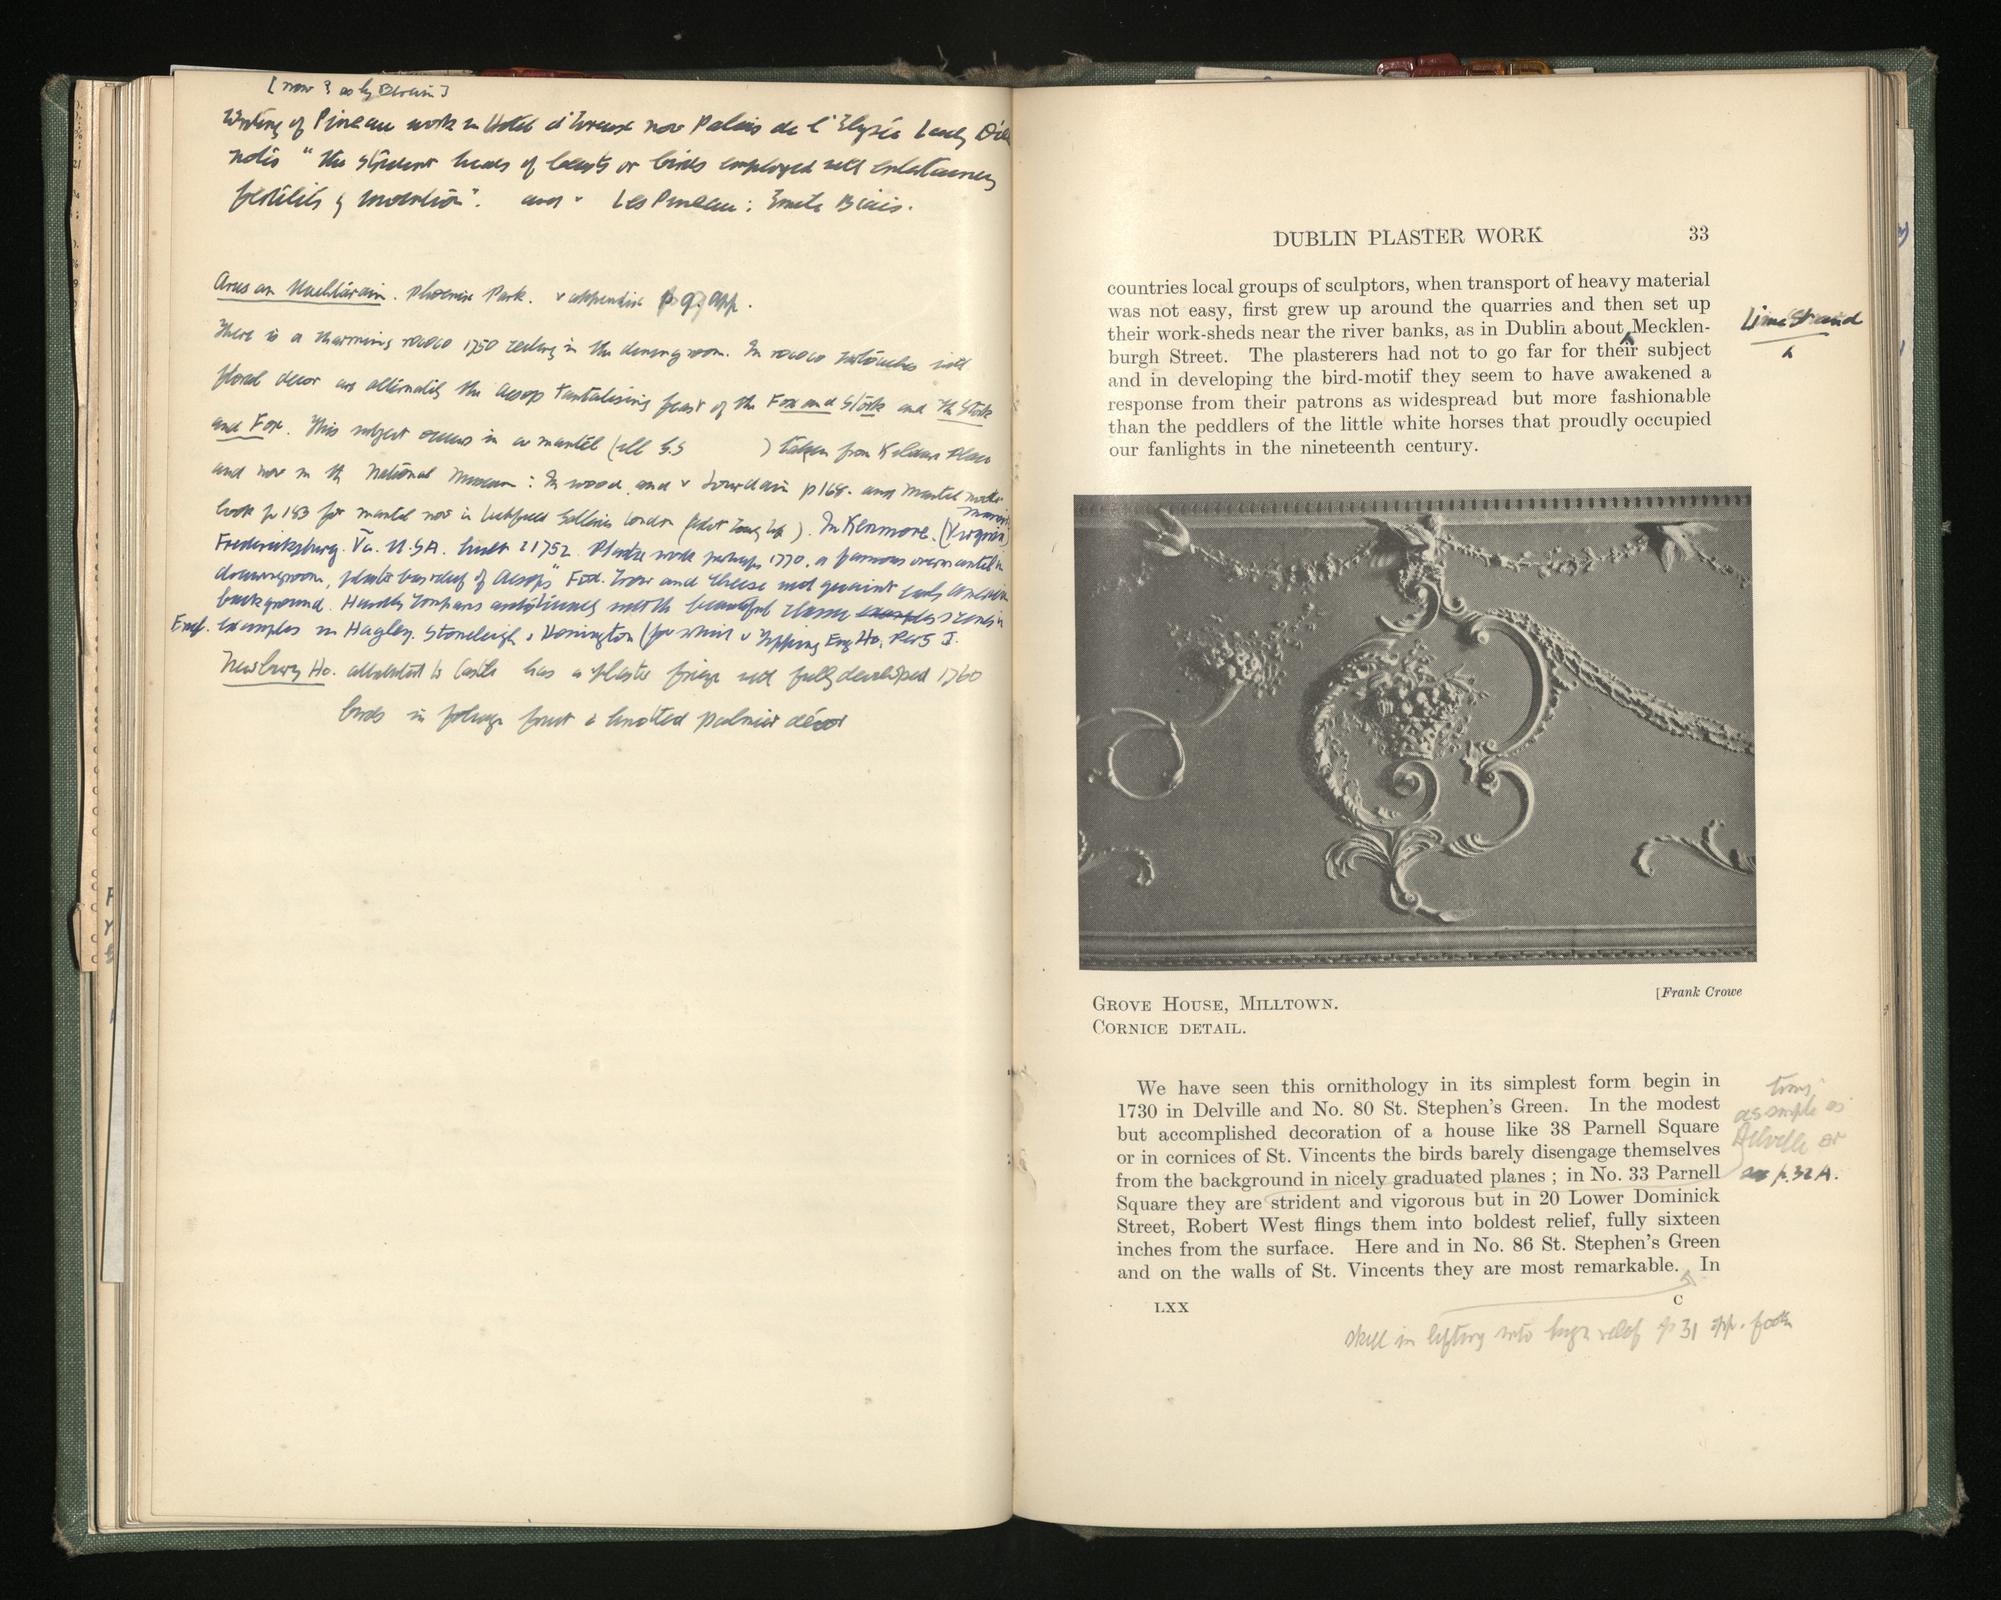 Writing of Pineau work in Hotel d'Evreux now Palais de l'Elysée Lady Dilke
notes "the strident heads of beasts or birds employed with entertaining
fertility of invention". and v Les Pineau: Emile Biais.
Aras an Uachtárain. Phoenix Park. v appendix p 97 app.
There is a charming rococo 1750 ceiling in the dining room. In rococo cartouches with
floral decor are alternately the Aesop tantalising feast of the Fox and Stork and the Stork
and Fox. This subject occurs in a mantel (ill G.S ) taken from Kildare Place
and now in the National Museum: In wood and v Jourdain p 168. and mantel
look p 183 for mantel now in Litchfield Galleries London ( ). In Kenmore. (Virginia)
Fredericksburg. Va. U.S.A. built 1752. Plaster work perhaps 1770. a famous overmantel in
drawingroom, plaster bas relief of Aesop's Fox. Crow and Cheese with quaint early American
background. Hardly compares with the beautiful examples scenes in
Eng. examples in Hagley. Stoneleigh & Honington (for which v Tipping Eng Ho. Per 5 I.
Newbury Ho. has a plaster frieze with fully developed 1760
birds in foliage fruit & knotted palmier décor
DUBLIN PLASTER WORK 33
countries local groups of sculptors, when transport of heavy material
was not easy, first grew up around the quarries and then set up
their work-sheds near the river banks, as in Dublin about Mecklen-
Lime Strand
burgh Street. The plasterers had not to go far for their subject
and in developing the bird-motif they seem to have awakened a
response from their patrons as widespread but more fashionable
than the peddlers of the little white horses that proudly occupied
our fanlights in the nineteenth century.
[Frank Crowe
GROVE HOUSE, MILLTOWN.
CORNICE DETAIL.
We have seen this ornithology in its simplest form begin in
1730 in Delville and No. 80 St. Stephen's Green. In the modest
but accomplished decoration of a house like 38 Parnell Square
or in cornices of St. Vincents the birds barely disengage themselves
from the background in nicely graduated planes ; in No. 33 Parnell
Square they are strident and vigorous but in 20 Lower Dominick
Street, Robert West flings them into boldest relief, fully sixteen
inches from the surface. Here and in No. 86 St. Stephen's Green
and on the walls of St. Vincents they are most remarkable. In
as simple as
Delville or
p. 32 A.
LXX C
skill in lifting into high relief p 31 opp. foot